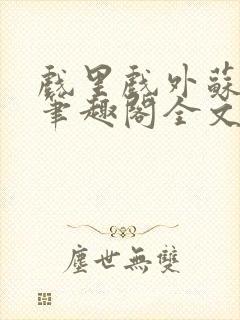 戲里戲外蘇
筆趣閣全文
塵世無雙